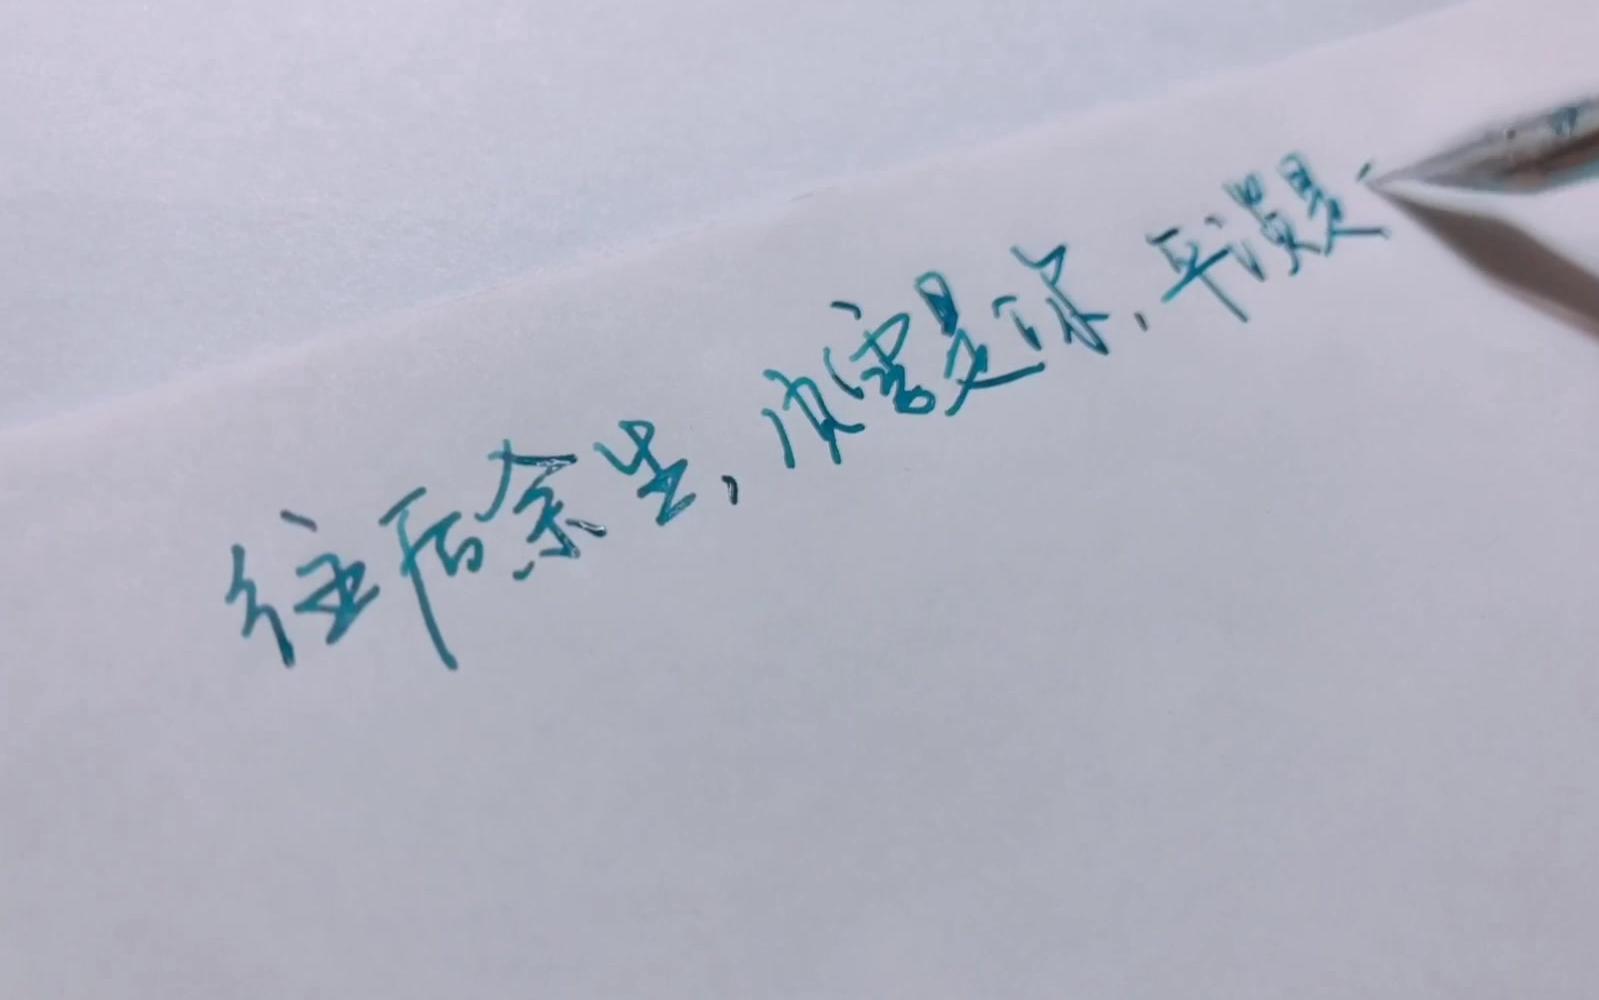 往后余生，风雪是你，平淡是